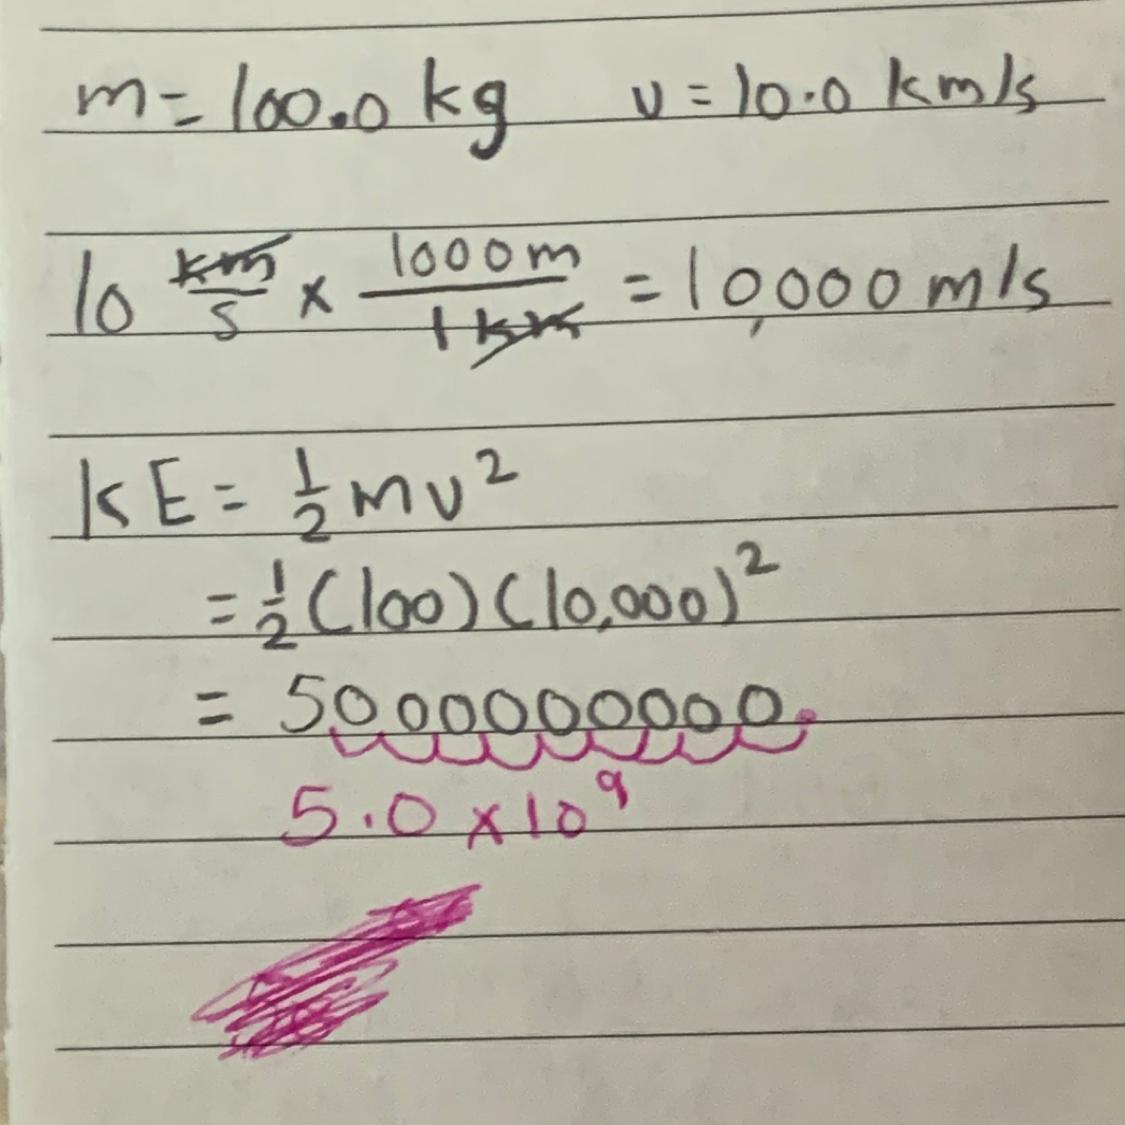 m = 100.0 kg v = 10.0 km/s
10 km/s × 1000m/1 km = 10,000 m/s
KE = ½ mv²
= ½ (100) (10,000)²
= 5000000000.
5.0 × 10⁹